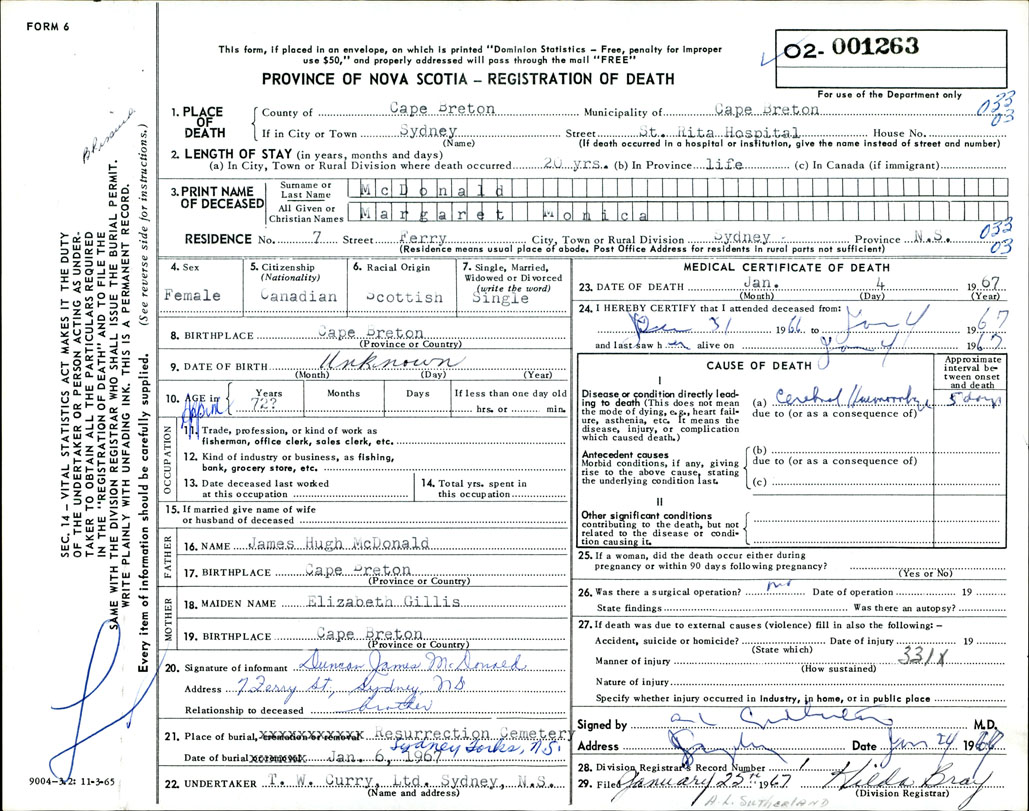 FORM 6
02- 001263
This form, if placed in an envelope, on which is printed "Dominion Statistics – Free, penalty for improper
use $50," and properly addressed will pass through the mail "FREE"
For use of the Department only
PROVINCE OF NOVA SCOTIA – REGISTRATION OF DEATH
1. PLACE OF DEATH
County of Cape Breton Municipality of Cape Breton 033
03
If in City or Town Sydney Street St. Rita Hospital House No.
(Name) (If death occurred in a hospital or institution, give the name instead of street and number)
2. LENGTH OF STAY (in years, months and days)
(a) In City, Town or Rural Division where death occurred 20 yrs. (b) In Province life (c) In Canada (if immigrant)
3. PRINT NAME OF DECEASED
Surname or Last Name McDonald
All Given or Christian Names Margaret Monica
RESIDENCE No. 7 Street Ferry City, Town or Rural Division Sydney - Province N.S. 033
03
(Residence means usual place of abode. Post Office Address for residents in rural parts not sufficient)
4. Sex
Female
5. Citizenship
(Nationality)
Canadian
6. Racial Origin
Scottish
7. Single, Married,
Widowed or Divorced
(write the word)
Single
8. BIRTHPLACE Cape Breton
(Province or Country)
9. DATE OF BIRTH Unknown
(Month) (Day) (Year)
10. AGE in Years Months Days If less than one day old
72? hrs. or min.
Approx
OCCUPATION
11. Trade, profession, or kind of work as
fisherman, office clerk, sales clerk, etc.
12. Kind of industry or business, as fishing,
bank, grocery store, etc.
13. Date deceased last worked
at this occupation
14. Total yrs. spent in
this occupation
15. If married give name of wife
or husband of deceased
FATHER
16. NAME James Hugh McDonald
17. BIRTHPLACE Cape Breton
(Province or Country)
MOTHER
18. MAIDEN NAME Elizabeth Gillis
19. BIRTHPLACE Cape Breton
(Province or Country)
20. Signature of informant Duncan James McDonald
Address 7 Ferry St, Sydney, NS
Relationship to deceased brother
21. Place of burial, Resurrection Cemetery
Sydney Forks, N.S.
Date of burial Jan. 6, 1967
22. UNDERTAKER T. W. Curry, Ltd. Sydney, N.S.
(Name and address)
MEDICAL CERTIFICATE OF DEATH
23. DATE OF DEATH Jan. 4 1967
(Month) (Day) (Year)
24. I HEREBY CERTIFY that I attended deceased from:
Dec 31 1966 to Jan 4 1967
and last saw her alive on Jan 4 1967
CAUSE OF DEATH
Approximate
interval be-
tween onset
and death
I
Disease or condition directly lead-
ing to death (This does not mean
the mode of dying, e.g., heart fail-
ure, asthenia, etc. It means the
disease, injury, or complication
which caused death.)
(a) Cerebral Haemorrhage 5 days
due to (or as a consequence of)
Antecedent causes
Morbid conditions, if any, giving
rise to the above cause, stating
the underlying condition last.
(b)
due to (or as a consequence of)
(c)
II
Other significant conditions
contributing to the death, but not
related to the disease or condi-
tion causing it.
25. If a woman, did the death occur either during
pregnancy or within 90 days following pregnancy?
(Yes or No)
26. Was there a surgical operation? no Date of operation 19
State findings Was there an autopsy?
27. If death was due to external causes (violence) fill in also the following: –
Accident, suicide or homicide? Date of injury 19
(State which)
331X
Manner of injury
(How sustained)
Nature of injury
Specify whether injury occurred in industry, in home, or in public place
Signed by M.D.
Address Sydney Date Jan 24 1966
28. Division Registrar's Record Number 1
29. Filed January 25th 1967 Hilda Bray
(Division Registrar)
A. L. SUTHERLAND
SEC. 14 – VITAL STATISTICS ACT MAKES IT THE DUTY
OF THE UNDERTAKER OR PERSON ACTING AS UNDER-
TAKER TO OBTAIN ALL THE PARTICULARS REQUIRED
IN THE "REGISTRATION OF DEATH" AND TO FILE THE
SAME WITH THE DIVISION REGISTRAR WHO SHALL ISSUE THE BURIAL PERMIT.
WRITE PLAINLY WITH UNFADING INK. THIS IS A PERMANENT RECORD.
Every item of information should be carefully supplied. (See reverse side for instructions.)
9004-3.2: 11-3-65